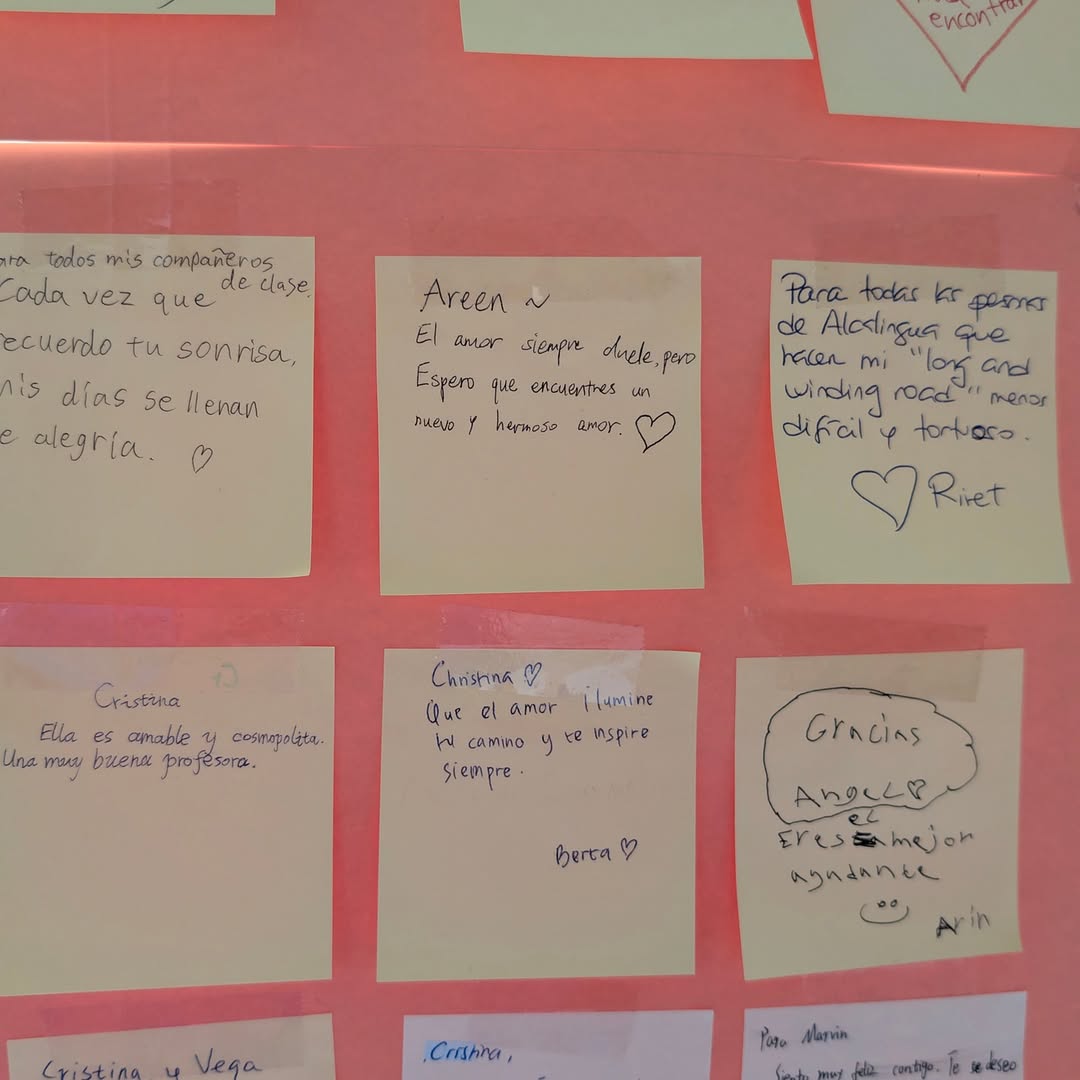 encontrar
ara todos mis compañeros
de clase.
Cada vez que
recuerdo tu sonrisa,
mis días se llenan
e alegría. ♡
Areen ~
El amor siempre duele, pero
Espero que encuentres un
nuevo y hermoso amor. ♡
Para todas las personas
de Alcalingua que
hacen mi "long and
winding road" menos
difícil y tortuoso.
♡ Riret
Cristina
Ella es amable y cosmopolita.
Una muy buena profesora.
Christina ♡
Que el amor ilumine
tu camino y te inspire
siempre.
Berta ♡
Gracias
Angel ♡
el
Eres mejor
ayudante
Arin
Cristina y Vega
Cristina,
Para Marvin
Siento muy feliz contigo. Te se deseo